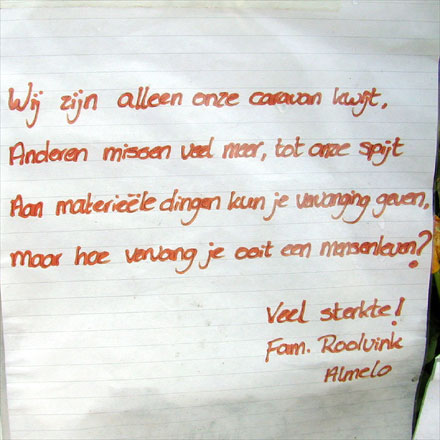 Wij zijn alleen onze caravan kwijt,
Anderen missen veel meer, tot onze spijt
Aan materieële dingen kun je vervanging geven,
maar hoe vervang je ooit een mensenleven?
Veel sterkte!
Fam. Roolvink
Almelo